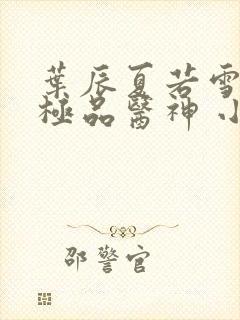 葉辰夏若雪
極品醫神 小
邵警官